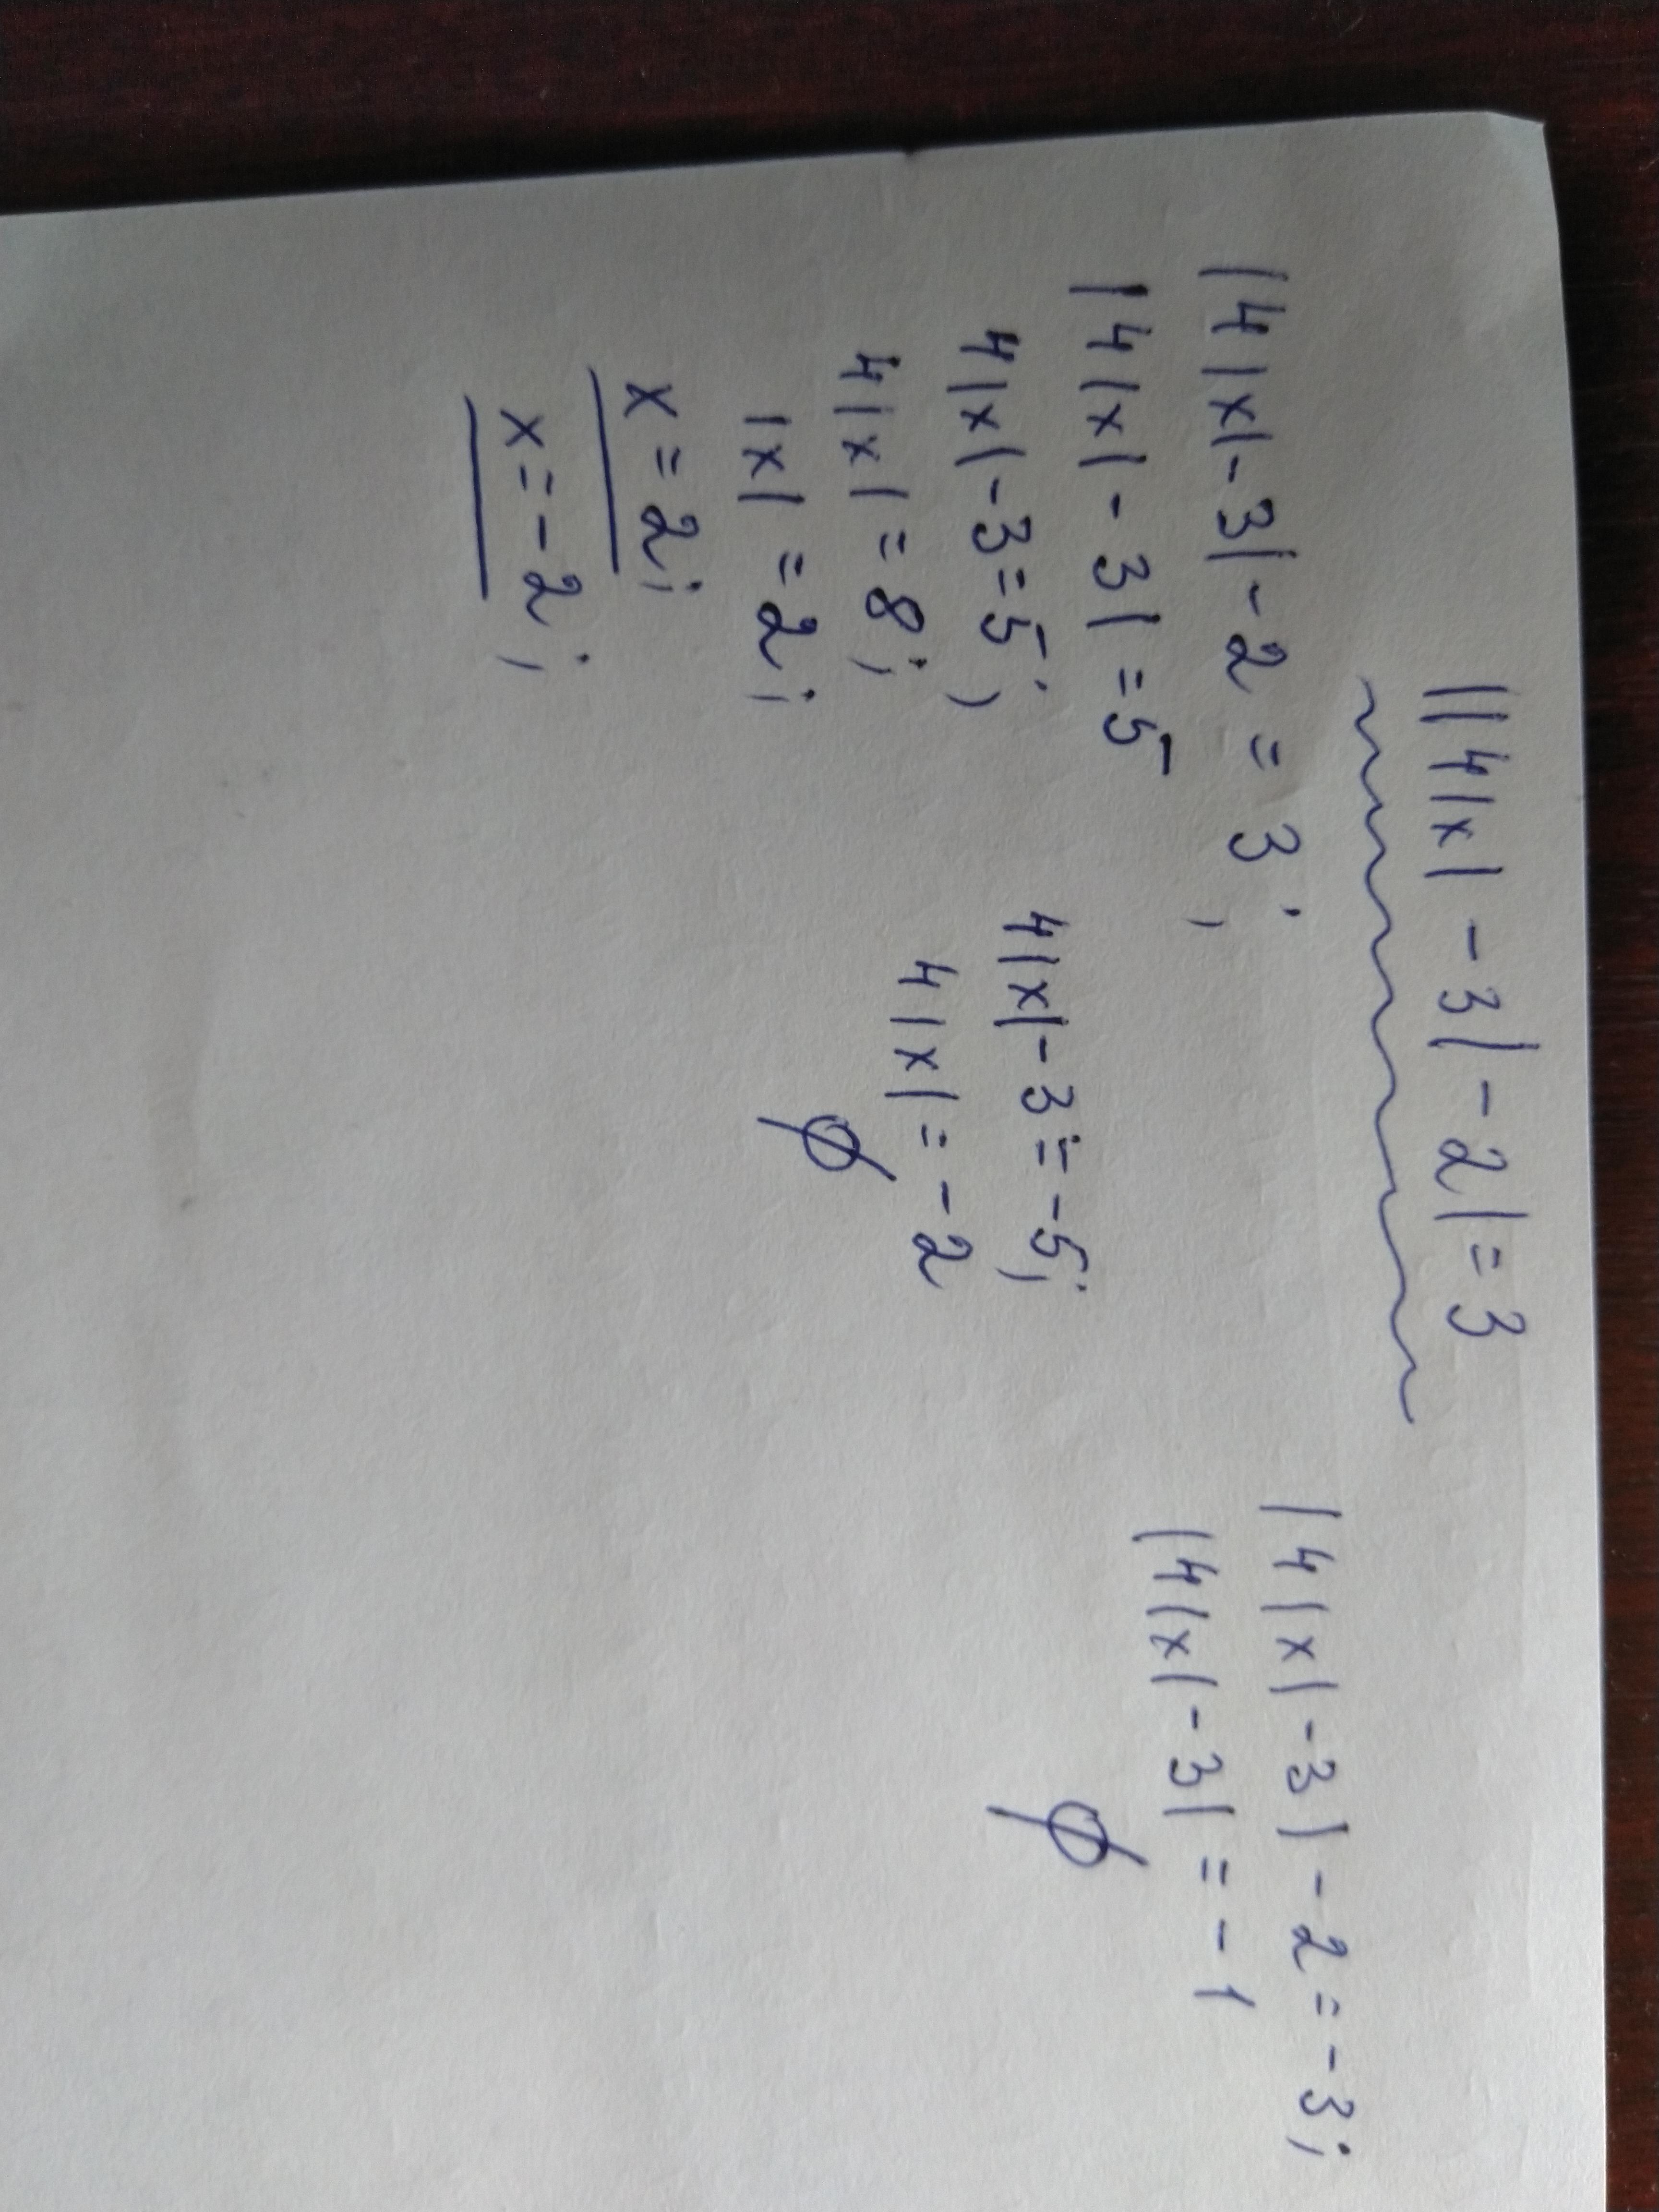 ||4|x| - 3| - 2| = 3
|4|x| - 3| - 2 = 3;
|4|x| - 3| = 5
4|x| - 3 = 5;
4|x| = 8;
|x| = 2;
x = 2;
x = -2;
4|x| - 3 = -5;
4|x| = -2
∅
|4|x| - 3| - 2 = -3;
|4|x| - 3| = -1
∅